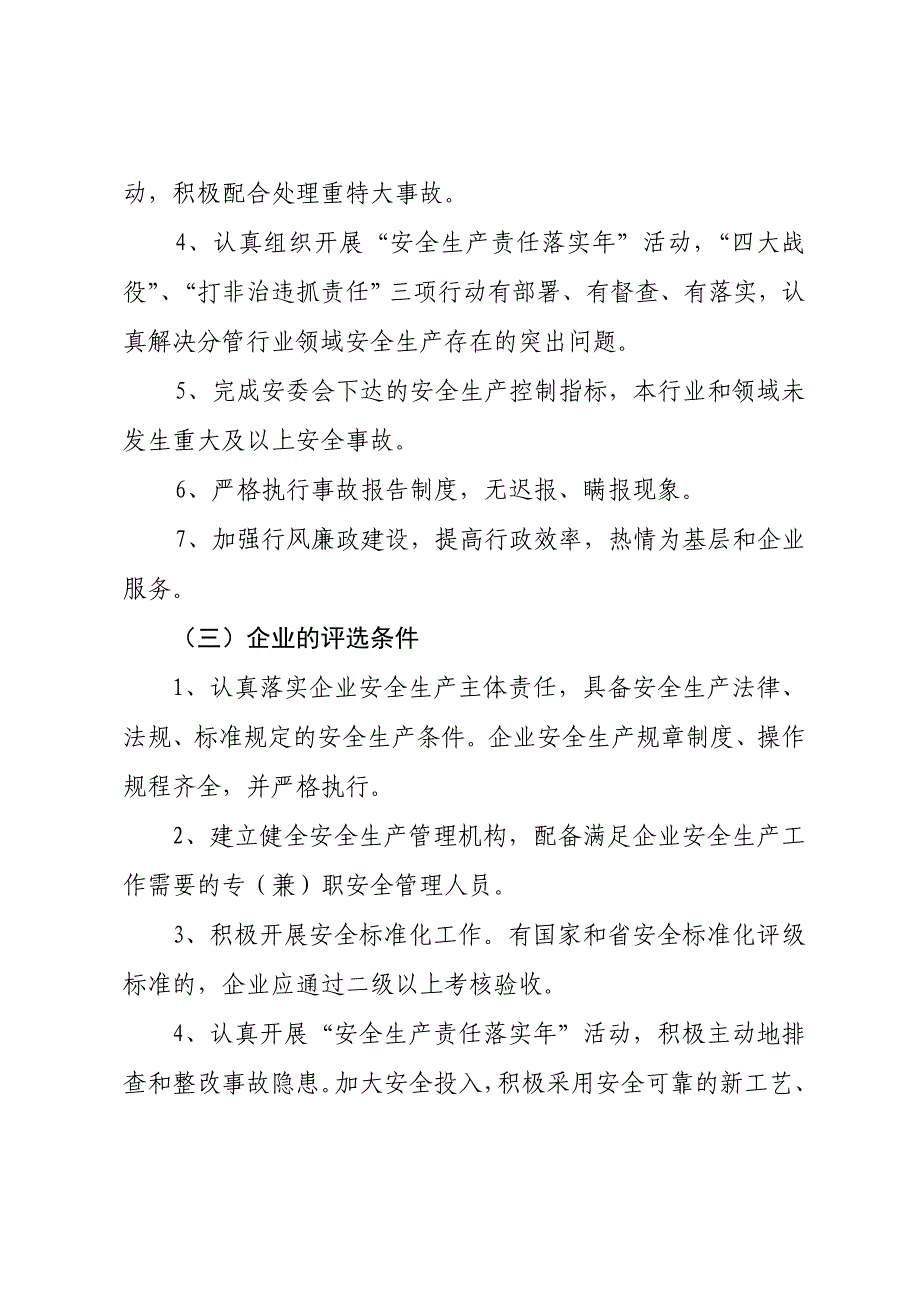 动，积极配合处理重特大事故。
4、认真组织开展“安全生产责任落实年”活动，“四大战
役”、“打非治违抓责任”三项行动有部署、有督查、有落实，认
真解决分管行业领域安全生产存在的突出问题。
5、完成安委会下达的安全生产控制指标，本行业和领域未
发生重大及以上安全事故。
6、严格执行事故报告制度，无迟报、瞒报现象。
7、加强行风廉政建设，提高行政效率，热情为基层和企业
服务。
（三）企业的评选条件
1、认真落实企业安全生产主体责任，具备安全生产法律、
法规、标准规定的安全生产条件。企业安全生产规章制度、操作
规程齐全，并严格执行。
2、建立健全安全生产管理机构，配备满足企业安全生产工
作需要的专（兼）职安全管理人员。
3、积极开展安全标准化工作。有国家和省安全标准化评级
标准的，企业应通过二级以上考核验收。
4、认真开展“安全生产责任落实年”活动，积极主动地排
查和整改事故隐患。加大安全投入，积极采用安全可靠的新工艺、